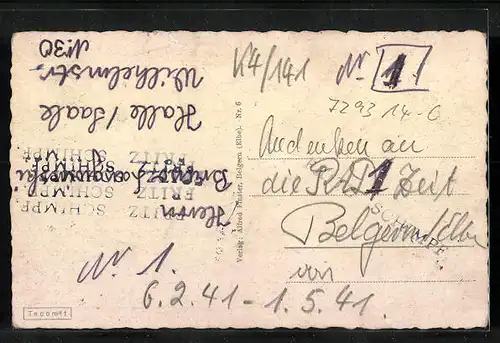 K4/141 Nr. 1.
7293 14-G
Andenken an
die RAD 1 Zeit
Belgern/Elbe
von
6.2.41 - 1.5.41.
Nr. 1.
Herrn
Halle / Saale
Wilhelmstr.
Nr. 30
FRITZ
SCHIMPF.
FRITZ
SCHIMPF.
SCHIMPF.
Verlag: Alfred Förster, Belgern (Elbe). Nr. 6